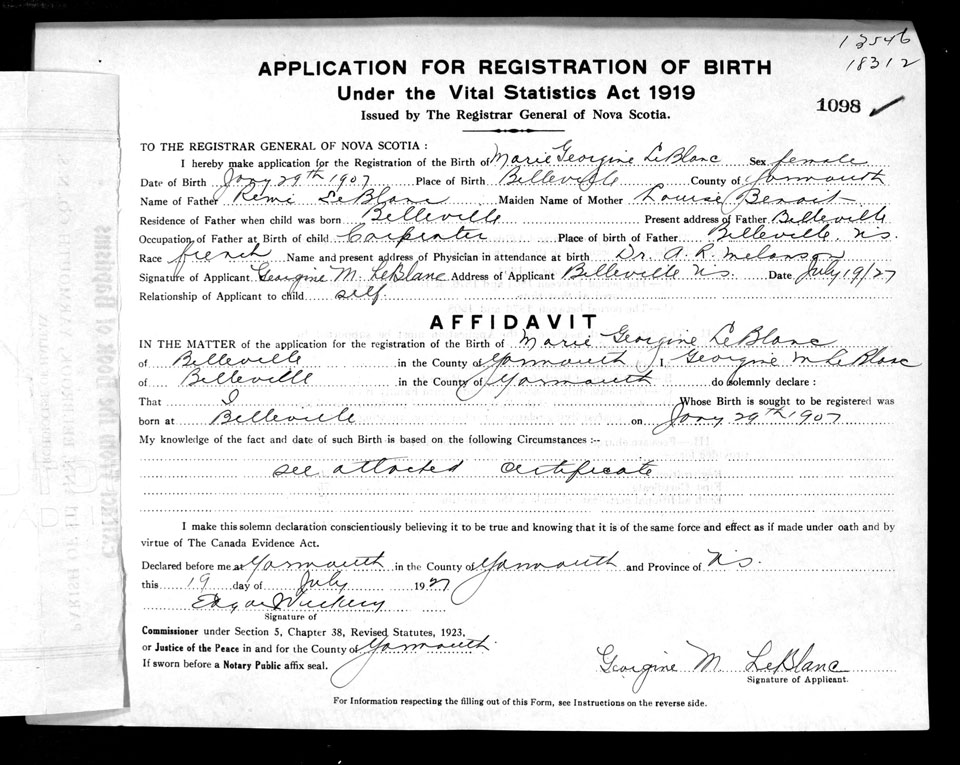 12546
18312
APPLICATION FOR REGISTRATION OF BIRTH
Under the Vital Statistics Act 1919
1098 ✓
Issued by The Registrar General of Nova Scotia.
TO THE REGISTRAR GENERAL OF NOVA SCOTIA :
I hereby make application for the Registration of the Birth of Marie Georgine LeBlanc Sex female
Date of Birth Jany 29th 1907 Place of Birth Belleville County of Yarmouth
Name of Father Remi LeBlanc Maiden Name of Mother Louise Benoit
Residence of Father when child was born Belleville Present address of Father Belleville
Occupation of Father at Birth of child Carpenter Place of birth of Father Belleville, N.S.
Race french Name and present address of Physician in attendance at birth Dr. A. R. Melanson
Signature of Applicant Georgine M. LeBlanc Address of Applicant Belleville N.S. Date July 19/27
Relationship of Applicant to child self.
AFFIDAVIT
IN THE MATTER of the application for the registration of the Birth of Marie Georgine LeBlanc
of Belleville in the County of Yarmouth I, Georgine M LeBlanc
of Belleville in the County of Yarmouth do solemnly declare :
That I Whose Birth is sought to be registered was
born at Belleville on Jany 29th 1907
My knowledge of the fact and date of such Birth is based on the following Circumstances :--
see attached certificate
I make this solemn declaration conscientiously believing it to be true and knowing that it is of the same force and effect as if made under oath and by
virtue of The Canada Evidence Act.
Declared before me at Yarmouth in the County of Yarmouth and Province of N.S.
this 19 day of July 1927
Edgar
Signature of
Commissioner under Section 5, Chapter 38, Revised Statutes, 1923,
or Justice of the Peace in and for the County of Yarmouth
If sworn before a Notary Public affix seal.
Georgine M. LeBlanc
Signature of Applicant.
For Information respecting the filling out of this Form, see Instructions on the reverse side.